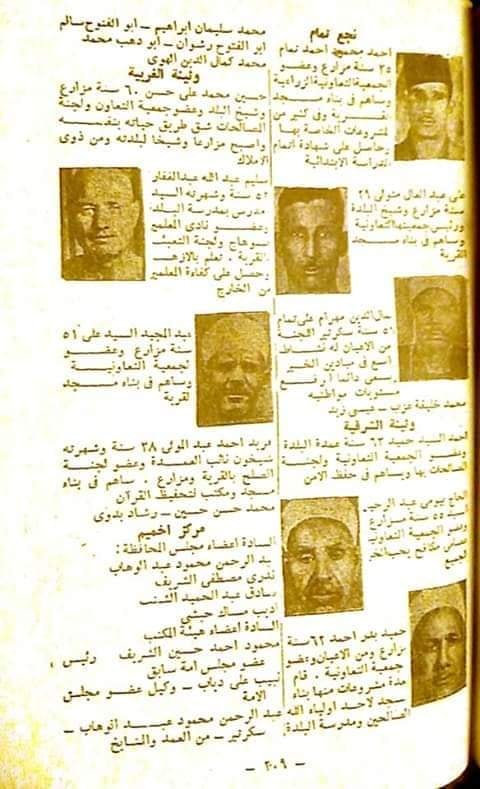 نجع تمام
احمد محمود احمد تمام
٣٥ سنة مزارع وعضو
الجمعية التعاونية الزراعية
وساهم فى بناء مسجد
القرية وفى كثير من
المشروعات الخاصة بها
وحاصل على شهادة اتمام
الدراسة الابتدائية
على عبد العال متولى ٢٩
سنة مزارع وشيخ البلدة
ورئيس جمعيتها التعاونية
وساهم فى بناء مسجد
القرية
جمال الدين مهرام على تمام
٥١ سنة سكرتير اللجنة
من الاعيان له نشاط
واسع فى ميادين الخير
يسعى دائما لرفع
مستويات مواطنيه
محمد خليفة عزب – عيسى زيد
ونينة الشرقية
احمد السيد حميد ٦٣ سنة عمدة البلدة
وعضو الجمعية التعاونية ولجنة
المصالحات بها ويساهم فى حفظ الامن
الحاج بيومى عبد الرحيم
السيد ٥٥ سنة مزارع
وعضو الجمعية التعاونية
عصامى مكافح يحب الخير
للجميع
حميد بدر احمد ٦٢ سنة
مزارع ومن الاعيان وعضو
جمعية التعاونية . قام
بعدة مشروعات منها بناء
مسجد لاحد اولياء الله
الصالحين ومدرسة البلدة
محمد سليمان ابراهيم – ابو الفتوح سالم
ابو الفتوح رشوان – ابو دهب محمد
محمد كمال الدين الهوى
ونينة الغربية
حسين محمد على حسن ٦٠ سنة مزارع
وشيخ البلد وعضو جمعية التعاون ولجنة
المصالحات شق طريق حياته بنفسه
واصبح مزارعا وشيخا لبلدته ومن ذوى
الاملاك
سليم عبد الله عبد الغفار
٥٢ سنة وشهرته السيد
مدرس بمدرسة البلدة
وعضو نادى المعلمين
بسوهاج ولجنة التعبئة
القرية . تعلم بالازهر
وحصل على كفاءة المعلمين
من الخارج
عبد المجيد السيد على ٥١
سنة مزارع وعضو
الجمعية التعاونية
وساهم فى بناء مسجد
القرية
فريد احمد عبد المولى ٣٨ سنة وشهرته
نائب العمدة وعضو لجنة
الصلح بالقرية ومزارع . ساهم فى بناء
مسجد ومكتب لتحفيظ القرآن
محمد حسن حسين – رشاد بدوى
مركز اخميم
السادة اعضاء مجلس المحافظة :
عبد الرحمن محمود عبد الوهاب
قدرى مصطفى الشريف
صادق عبد الحميد
اديب مساك حبشى
السادة اعضاء هيئة المكتب
محمود احمد حسين الشريف رئيس
عضو مجلس امة سابق
نبيب على دياب – وكيل عضو مجلس
الامة
عبد الرحمن محمود عبد الوهاب –
سكرتير – من العمد والمشايخ
– ٣٠٩ –